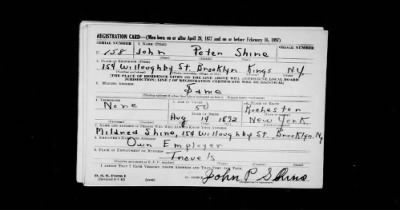 REGISTRATION CARD—(Men born on or after April 28, 1877 and on or before February 16, 1897)
SERIAL NUMBER 1. NAME (Print) ORDER NUMBER
U 158 John Peter Shine
2. PLACE OF RESIDENCE (Print)
154 Willoughby St. Brooklyn Kings N.Y.
[THE PLACE OF RESIDENCE GIVEN ON THE LINE ABOVE WILL DETERMINE LOCAL BOARD
JURISDICTION; LINE 2 OF REGISTRATION CERTIFICATE WILL BE IDENTICAL]
3. MAILING ADDRESS
Same
4. TELEPHONE 5. AGE IN YEARS 6. PLACE OF BIRTH
None 50 Rochester
DATE OF BIRTH
Aug 14 1892 New York
7. NAME AND ADDRESS OF PERSON WHO WILL ALWAYS KNOW YOUR ADDRESS
Mildred Shine, 154 Willoughby St. Brooklyn, Ny
8. EMPLOYER'S NAME AND ADDRESS
Own Employer
9. PLACE OF EMPLOYMENT OR BUSINESS
I AFFIRM THAT I HAVE VERIFIED ABOVE ANSWERS AND THAT THEY ARE TRUE.
John P Shine